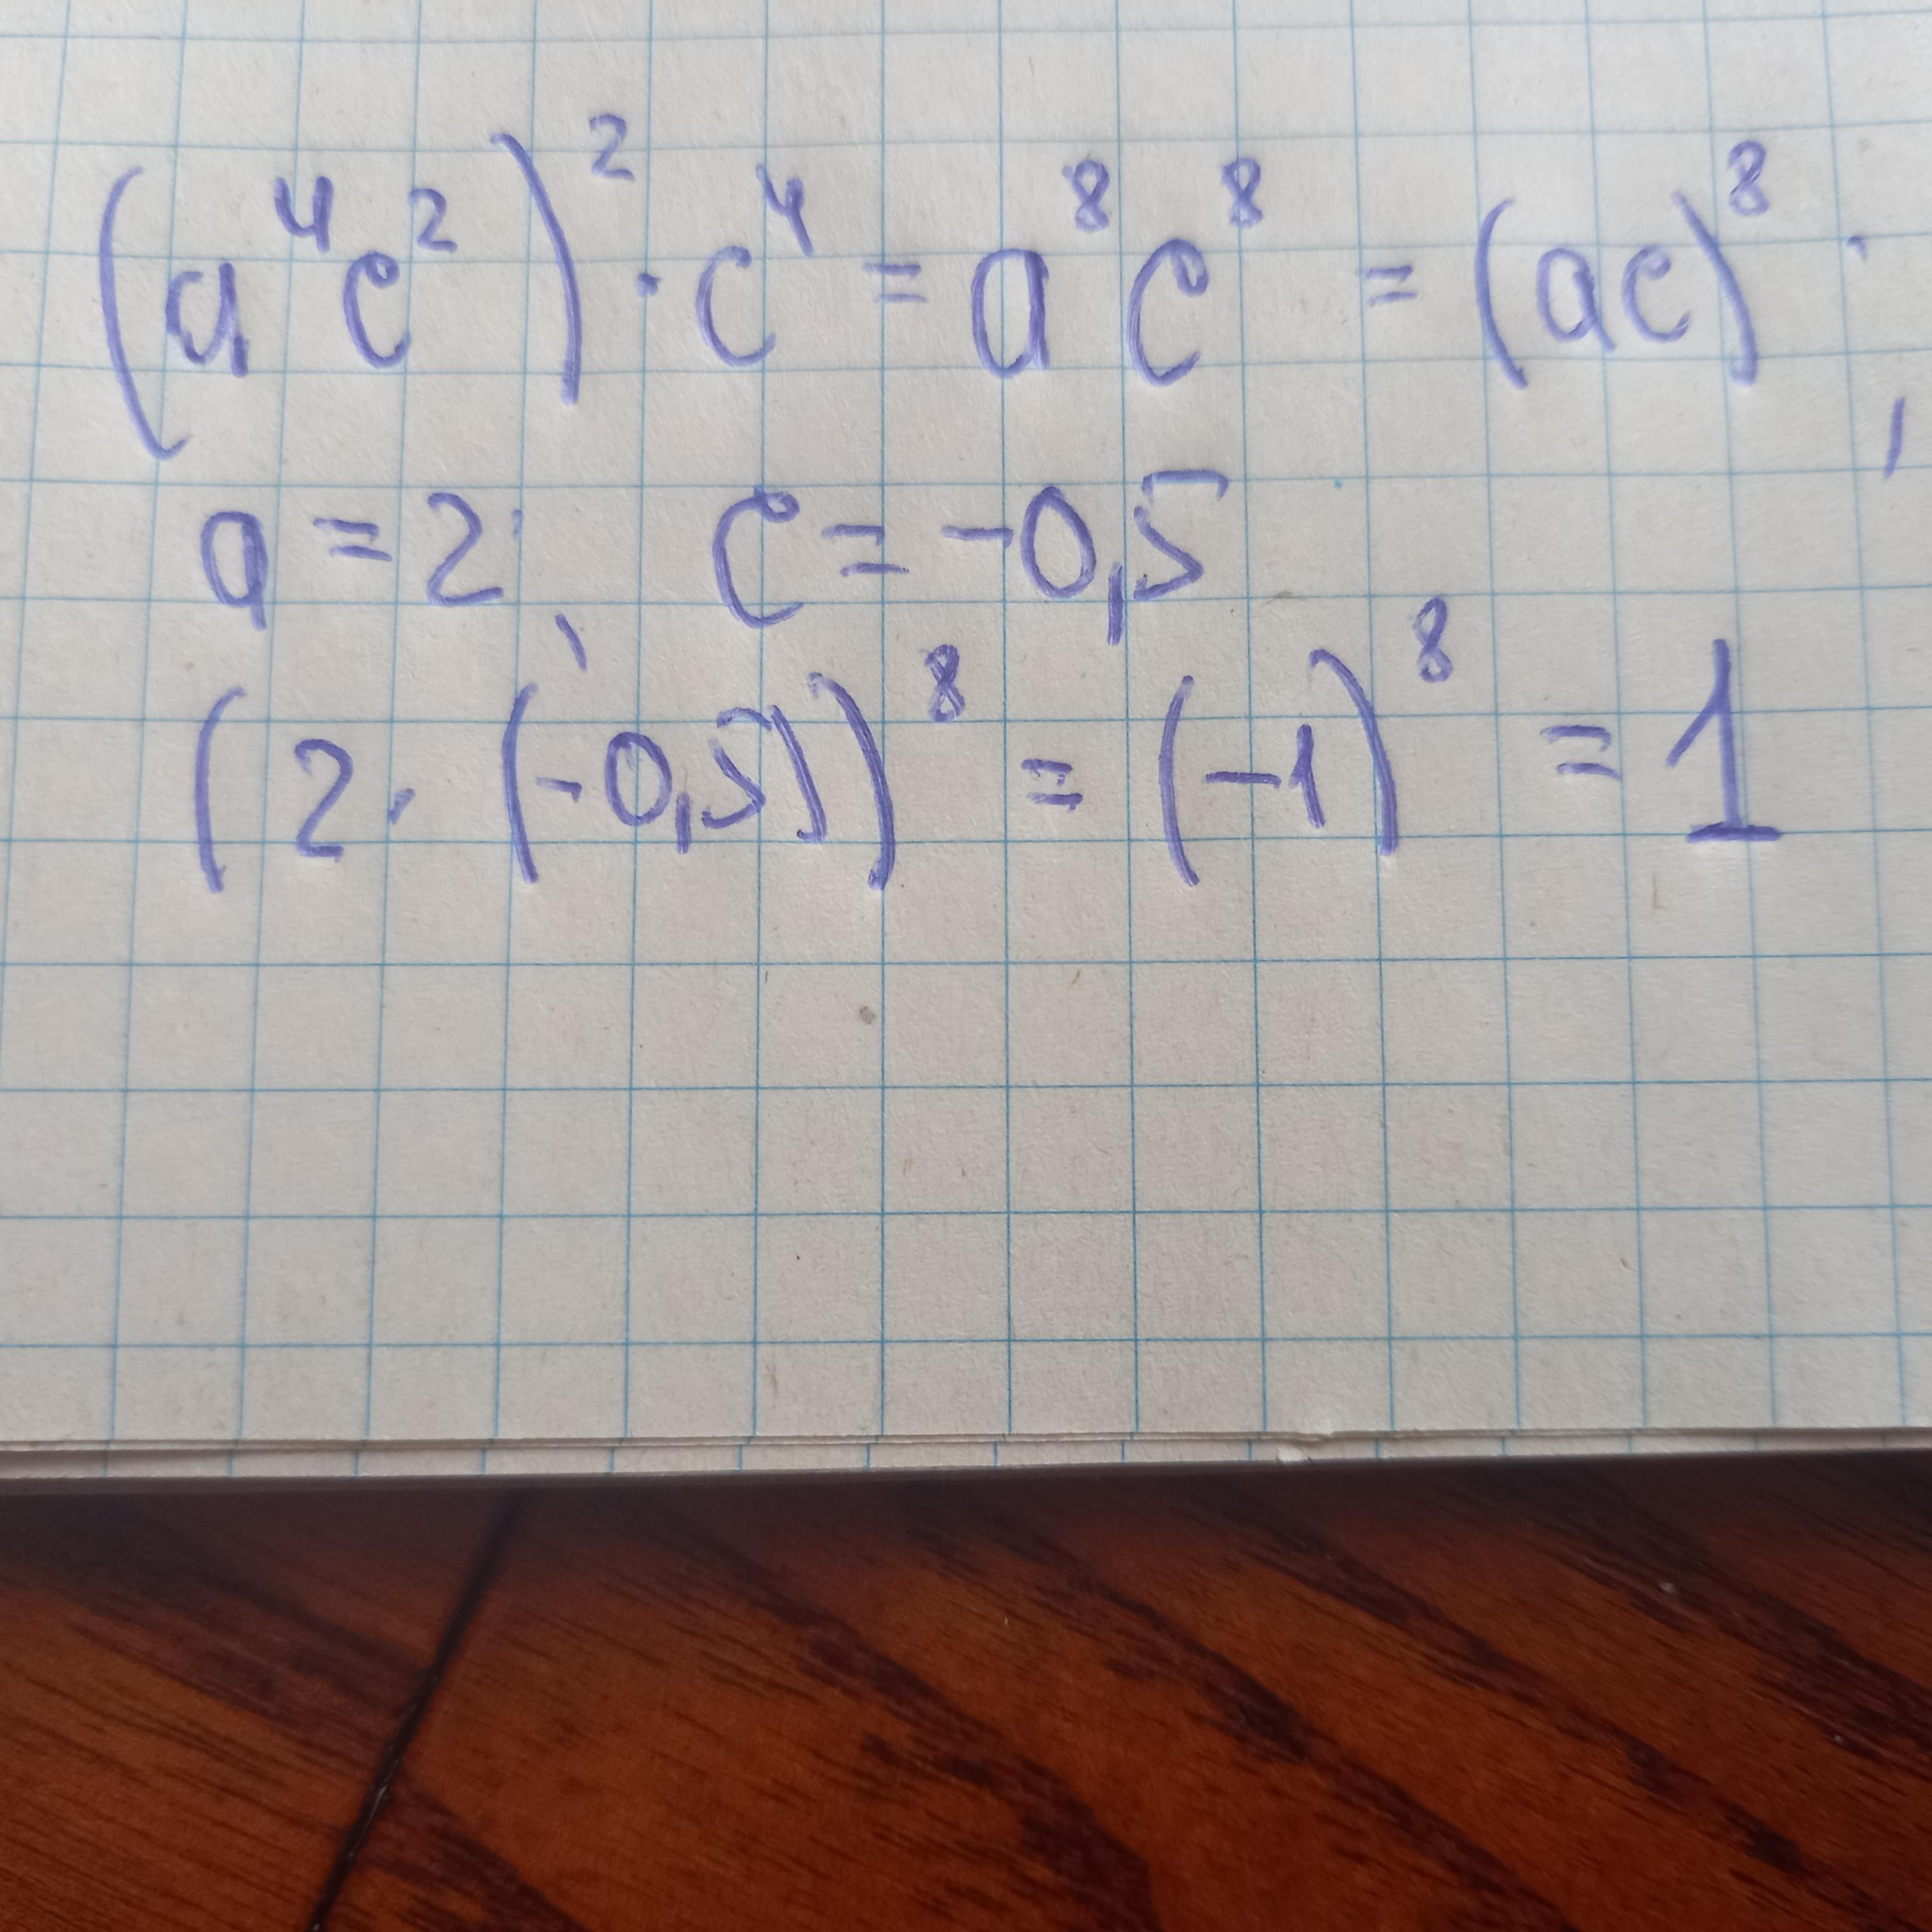 (a⁴c²)² · c⁴ = a⁸c⁸ = (ac)⁸;
a = 2; c = -0,5
(2 · (-0,5))⁸ = (-1)⁸ = 1